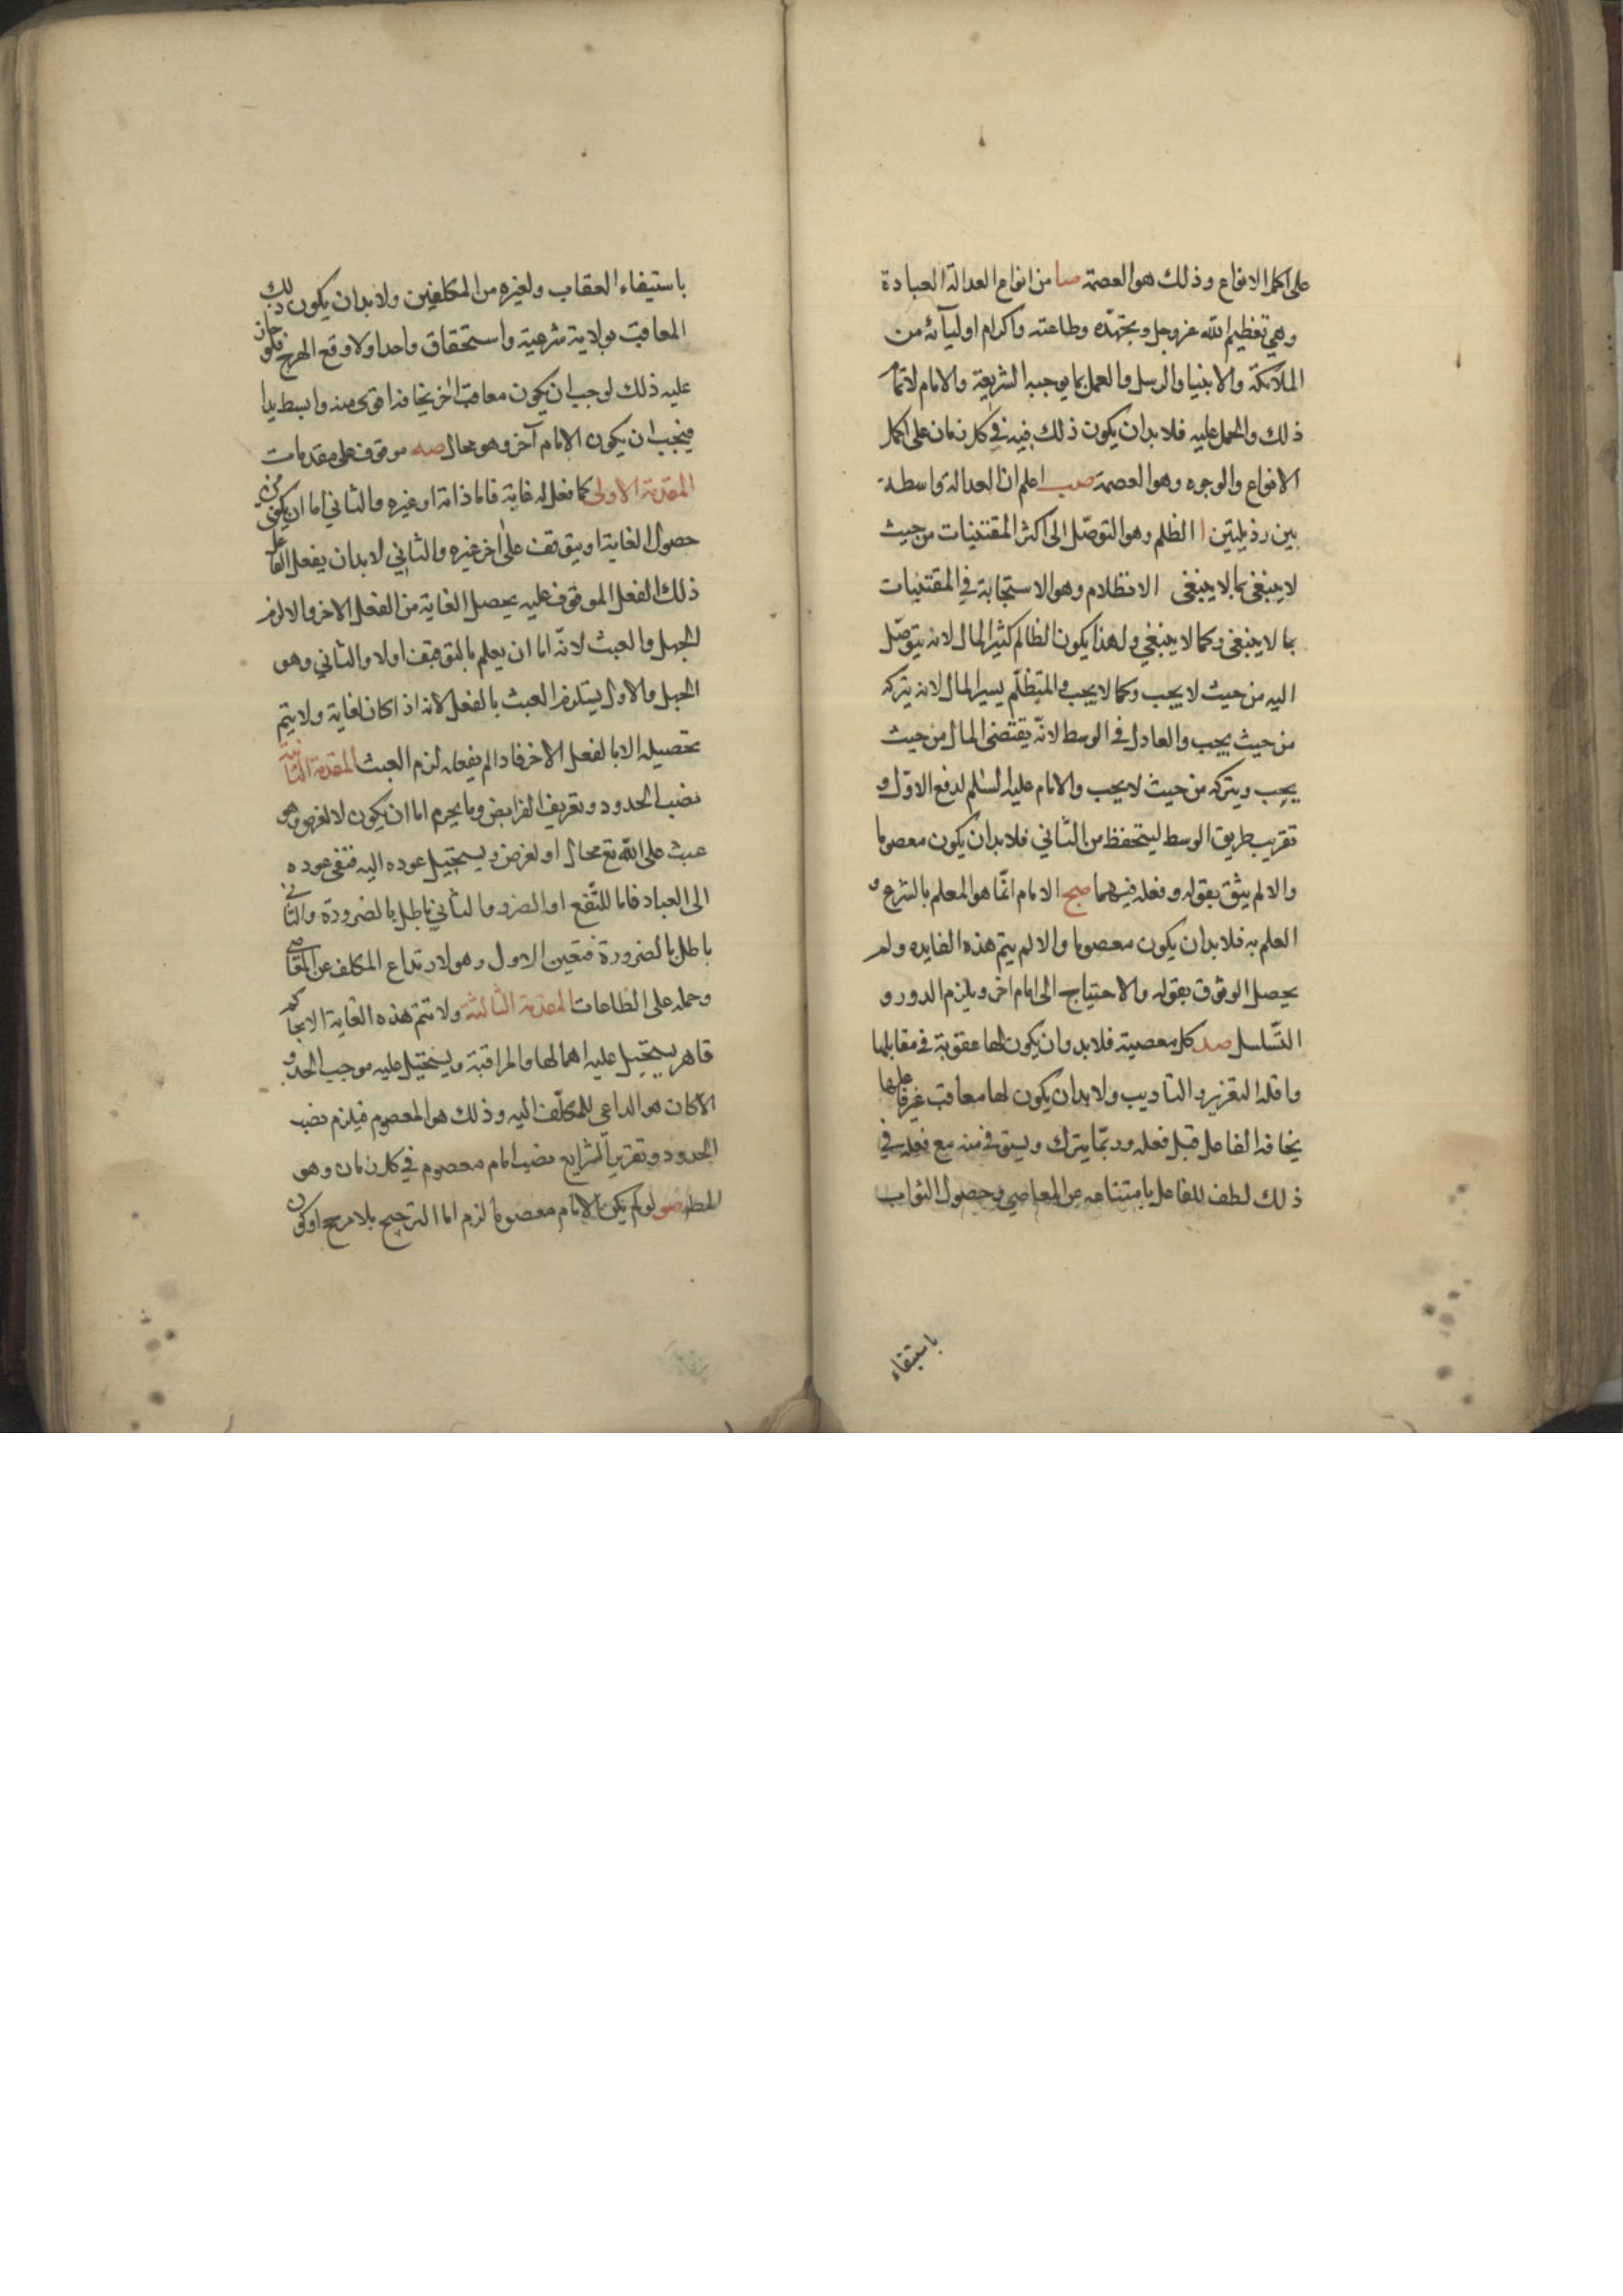 على اكمل الانواع وذلك هو العصمة صا من انواع العدالة العبادة
وهي تعظيم الله عزوجل وبجتهده وطاعته واكرام اوليآئه من
الملآئكة والانبيا والرسل والعمل بما يوجبه الشريعة والامام لاتمام
ذلك والحمل عليه فلا بد ان يكون ذلك فيه في كل زمان على اكمل
الانواع والوجوه وهو العصمة صب اعلم ان العدالة واسطة
بين رذيلتين ا الظلم وهو التوصّل الى اكثر المقتنيات من حيث
لا ينبغي بما لا ينبغي الانظلام وهو الاستجابة في المقتنيات
بما لا ينبغي وكما لا ينبغي ولهذا يكون الظالم كثير المال لانه يتوصّل
اليه من حيث لا يجب وكما لا يجب والمتظلّم يسير المال لانه يتركه
من حيث يجب والعادل في الوسط لانّه يقتضى المال من حيث
يجب ويتركه من حيث لا يجب والامام عليه السّلم لدفع الاوّل و
تقريب طريق الوسط ليتحفظ من الثاني فلا بد ان يكون معصوما
والا لم يثق بقوله وفعله فيهما صج الامام انّما هو المعلم بالشرع و
العلم به فلا بد ان يكون معصوما والا لم يتم هذه الفايده ولم
يحصل الوثوق بقوله والاحتياج الى امام اخر ويلزم الدور و
التّسلسل صد كل معصية فلا بد وان يكون لها عقوبة في مقابلها
واقله التعزير والتاديب ولا بد ان يكون لها معاقب غير فاعلها
يخافه الفاعل قبل فعله وربّما يترك ويستوفي منه مع فعله في
ذلك لطف للفاعل بامتناعه عن المعاصي وحصول الثواب
باستيفاء
باستيفاء العقاب ولغيره من المكلفين ولا بد ان يكون ذلك
المعاقب بولاية شرعية واستحقاق واحد اولا وقع الهرج فلو جاز
عليه ذلك لوجب ان يكون معاقب اخر يخافه اقوى منه وابسط يدا
فيجب ان يكون الامام آخر وهو محال صه موقوف على مقدمات
المقدمة الاولى كلما فعل له غاية فاما ذاته او غيره والثاني اما ان يكون
حصول الغاية او يتوقف على اخر غيره والثاني لا بد ان يفعل الفاعل
ذلك الفعل الموقوف عليه يحصل الغاية من الفعل الاخر والا لزم
الجهل والعبث لانّه اما ان يعلم بالتوقف اولا والثاني وهو
الجهل والاول يستلزم العبث بالفعل لانه اذا كان لغاية ولا يتم
تحصيله الا بالفعل الاخر فاذا لم يفعله لزم العبث المقدمة الثانية
نصب الحدود وتعريف الفرايض وما يحرم اما ان يكون لا لغرض وهو
عبث على الله تع محال او لغرض ويستحيل عوده اليه فبقى عوده
الى العباد فاما للنّفع او الضرر والثاني باطل بالضرورة والثاني
باطل بالضرورة فتعين الاول وهو لارتداع المكلف عن المعاصي
وحمله على الطاعات المقدمة الثالثة ولا تتم هذه الغاية الا بحاكم
قاهر يستحيل عليه اهمالها والمراقبة ويستحيل عليه موجب الحد و
الا كان هو الداعي للمكلّف اليه وذلك هو المعصوم فيلزم نصب
الحدود وتقرير الشرايع نصب امام معصوم في كل زمان وهو
المطلو صو لو لم يكن الامام معصوما لزم اما الترجيح بلا مرجح او كون